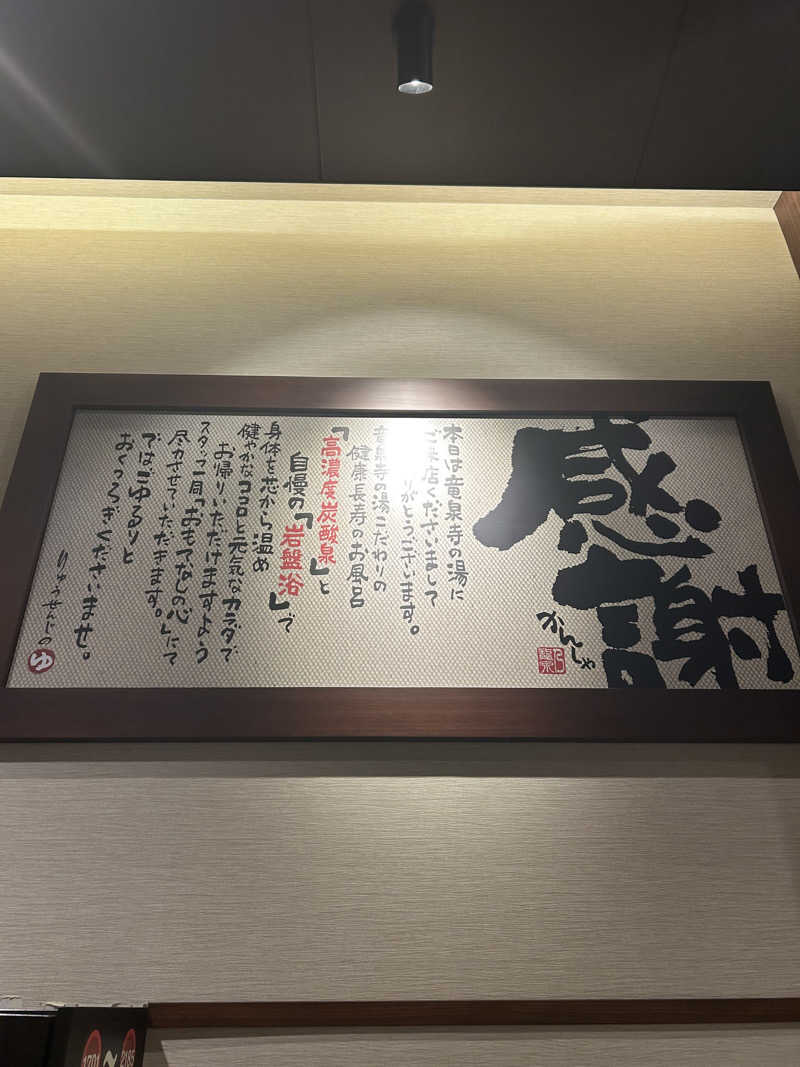 感謝
かんしゃ
本日は竜泉寺の湯に
ご来店くださいまして
りがとうございます。
竜泉寺の湯こだわりの
健康長寿のお風呂
「高濃度炭酸泉」と
自慢の「岩盤浴」で
身体を芯から温め
健やかなココロと元気なカラダで
お帰りいただけますよう
スタッフ一同「おもてなしの心」にて
尽力させていただきます。
ではごゆるりと
おくつろぎくださいませ。
りゅうせんじの
ゆ
1701
～
2185